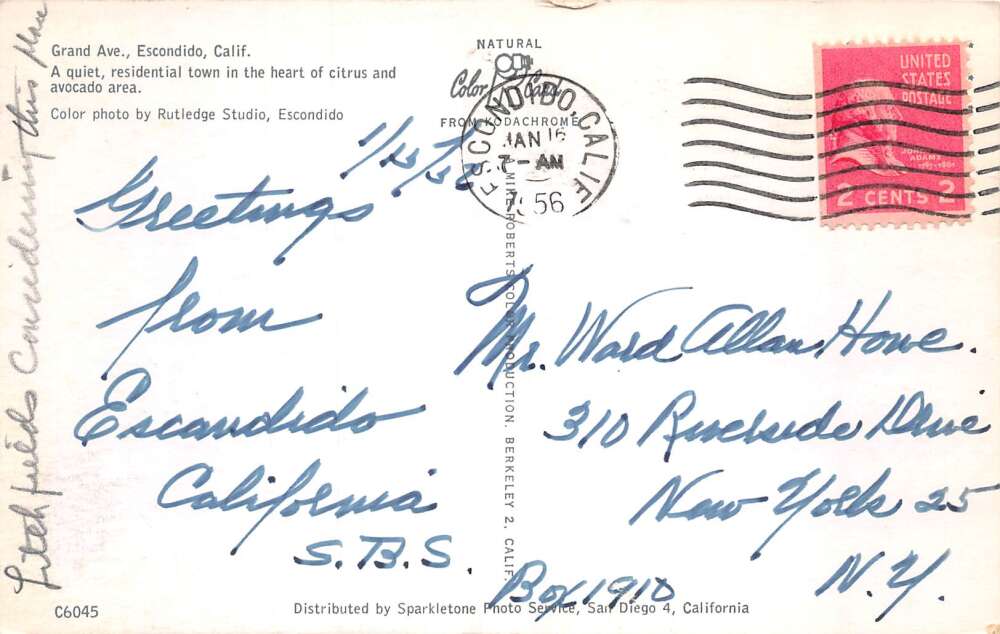 Grand Ave., Escondido, Calif.
A quiet, residential town in the heart of citrus and
avocado area.
Color photo by Rutledge Studio, Escondido
NATURAL
Color Card
FROM KODACHROME
ESCONDIDO, CALIF.
JAN 16
7 - AM
1956
UNITED
STATES
POSTAGE
JOHN
ADAMS
2 CENTS 2
Greetings
from
Escandido
California
S.B.S.
Mr. Ward Allan Howe.
310 Riverside Drive
New York 25
N.Y.
Box 1910
Litchfields Considering this
MIKE ROBERTS COLOR PRODUCTION, BERKELEY 2, CALIF.
C6045
Distributed by Sparkletone Photo Service, San Diego 4, California